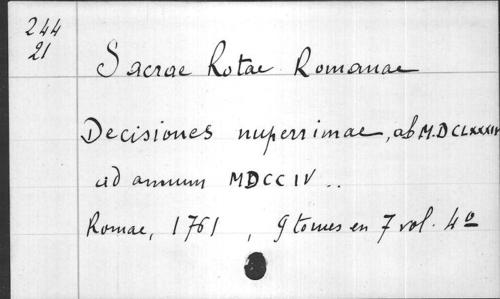 244
21
Sacrae Rotae Romanae
Decisiones nuperrimae, ab M.DCLXXXIV
ad annum MDCCIV ..
Romae, 1761, 9 tomes en 7 vol. 4º